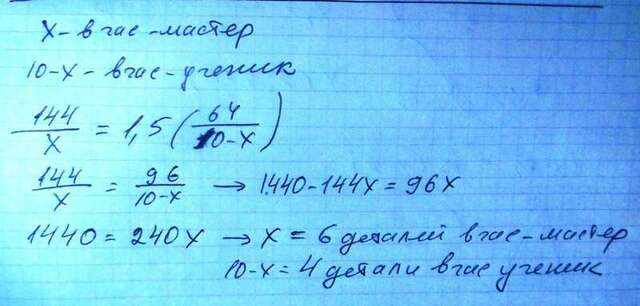 х - в час - мастер
10-х - в час - ученик
144/х = 1,5 (64/10-х)
144/х = 96/10-х → 1440-144х = 96х
1440 = 240х → х = 6 деталей в час - мастер
10-х = 4 детали в час ученик